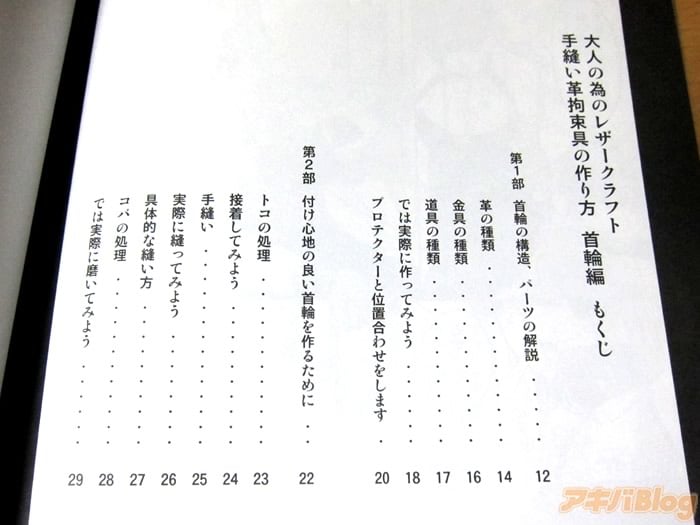 大人の為のレザークラフト
手縫い革拘束具の作り方　首輪編　もくじ
第1部　首輪の構造、パーツの解説 ..... 12
革の種類 .......... 14
金具の種類 ......... 16
道具の種類 ......... 17
では実際に作ってみよう ..... 18
プロテクターと位置合わせをします . 20
第2部　付け心地の良い首輪を作るために .. 22
トコの処理 ......... 23
接着してみよう ........ 24
手縫い ........... 25
実際に縫ってみよう ...... 26
具体的な縫い方 ....... 27
コバの処理 ......... 28
では実際に磨いてみよう ..... 29
アキバBlog